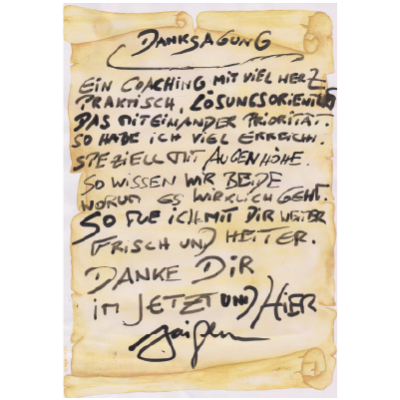 DANKSAGUNG
EIN COACHING MIT VIEL HERZ
PRAKTISCH, LÖSUNGSORIENTIERT
DAS MITEINANDER PRIORITÄT.
SO HABE ICH VIEL ERREICHT.
SPEZIELL MIT AUGENHÖHE.
SO WISSEN WIR BEIDE
WORUM ES WIRKLICH GEHT.
SO ICH MIT DIR WEITER
FRISCH UND HEITER.
DANKE DIR
IM JETZT UND HIER